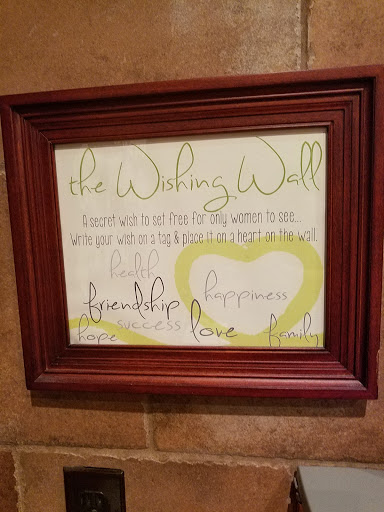 the Wishing Wall
A secret wish to set free for only women to see...
Write your wish on a tag & place it on a heart on the wall.
health
happiness
friendship
success
hope love family